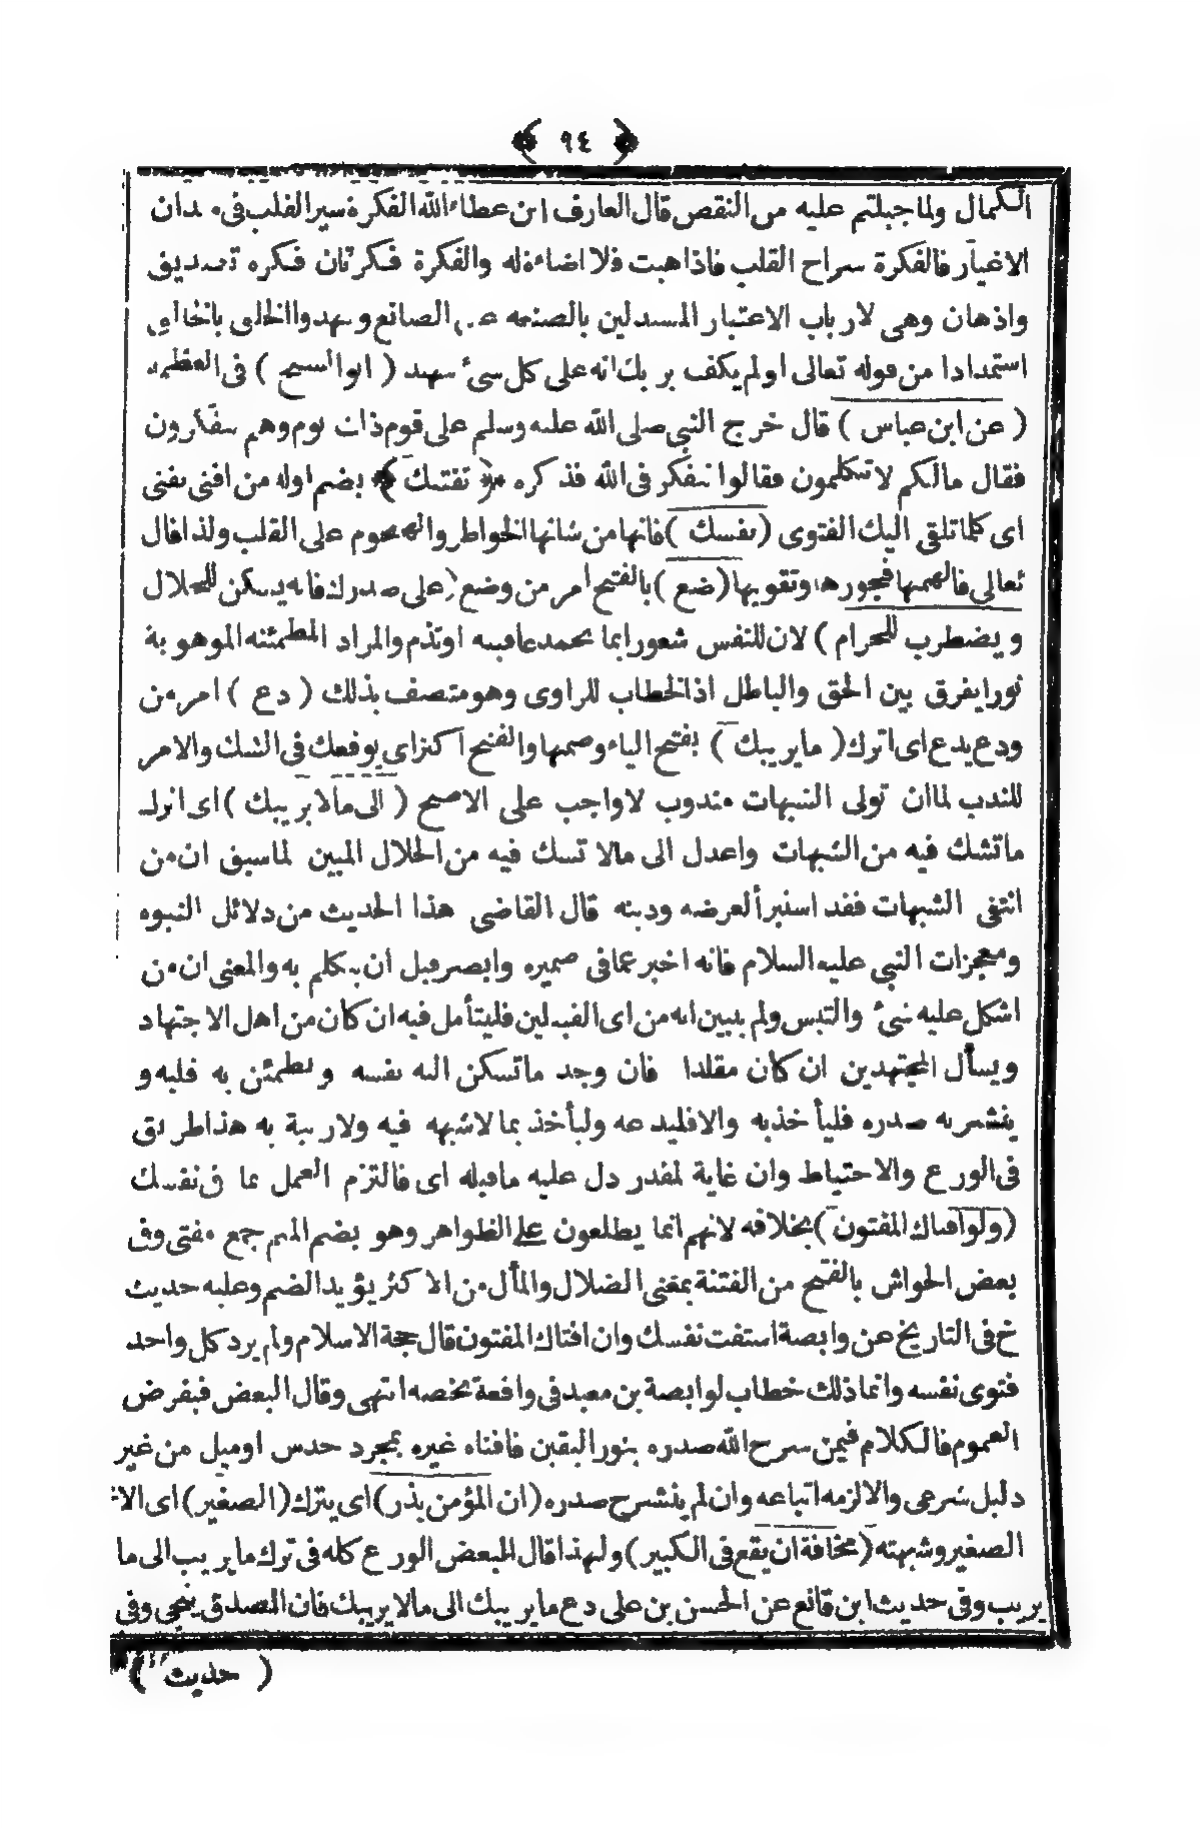 ﴿ ٩٤ ﴾
الكمال ولما جبلتم عليه من النقص قال العارف ابن عطاء الله الفكرة سير القلب فى ميدان
الاغيار فالفكرة سراج القلب فاذا ذهبت فلا اضاءة له والفكرة فكرتان فكرة تصديق
واذهان وهى لارباب الاعتبار المستدلين بالصنعة عن الصانع وشهدوا الخلق بالخالق
استمدادا من قوله تعالى اولم يكف بربك انه على كل شىء شهيد ( ابو الشيخ ) فى العظمة
( عن ابن عباس ) قال خرج النبى صلى الله عليه وسلم على قوم ذات يوم وهم يتفكرون
فقال مالكم لا تتكلمون فقالوا نتفكر فى الله فذكره ﴿ تفتيك ﴾ بضم اوله من افتى يفتى
اى كلما تلقى اليك الفتوى ( نفسك ) فانها من شانها الخواطر والهجوم على القلب ولذا قال
تعالى فالهمها فجورها وتقويها ( ضع ) بالفتح امر من وضع ( على صدرك فانه يسكن للحلال
ويضطرب للحرام ) لان للنفس شعورا بما تحمد عاقبته او تذم والمراد المطمئنة الموهوبة
نورا يفرق بين الحق والباطل اذ الخطاب للراوى وهو متصف بذلك ( دع ) امر من
ودع يدع اى اترك ( ما يريبك ) بفتح الياء وضمها والفتح اكثر اى يوقعك فى الشك والامر
للندب لما ان توقى الشبهات مندوب لا واجب على الاصح ( الى ما لا يريبك ) اى اترك
ما تشك فيه من الشبهات واعدل الى ما لا تشك فيه من الحلال المبين لما سبق ان من
اتقى الشبهات فقد استبرأ لعرضه ودينه قال القاضى هذا الحديث من دلائل النبوة
ومعجزات النبى عليه السلام فانه اخبر عما فى ضميره وابصر قبل ان يتكلم به والمعنى ان من
اشكل عليه شىء والتبس ولم يتبين انه من اى القبيلين فليتأمل فيه ان كان من اهل الاجتهاد
ويسأل المجتهدين ان كان مقلدا فان وجد ما تسكن اليه نفسه ويطمئن به قلبه و
ينشرح به صدره فليأخذ به والا فليدعه وليأخذ بما لا شبهة فيه ولا ريبة به هذا طريق
فى الورع والاحتياط وان غاية لمقدر دل عليه ما قبله اى فالتزم العمل بما فى نفسك
( ولو افتاك المفتون ) بخلافه لانهم انما يطلعون على الظواهر وهو بضم الميم جمع مفتى وفى
بعض الحواش بالفتح من الفتنة بمعنى الضلال والمأل من الاكثر يؤيد الضم وعليه حديث
خ فى التاريخ عن وابصة استفت نفسك وان افتاك المفتون قال حجة الاسلام ولم يرد كل واحد
فتوى نفسه وانما ذلك خطاب لوابصة بن معبد فى واقعة تخصه انتهى وقال البعض فبفرض
العموم فالكلام فيمن شرح الله صدره بنور اليقين فافتاه غيره بمجرد حدس او ميل من غير
دليل شرعى والا لزمه اتباعه وان لم ينشرح صدره ( ان المؤمن يذر ) اى يترك ( الصغير ) اى الاثم
الصغير وشبهته ( مخافة ان يقع فى الكبير ) ولهذا قال البعض الورع كله فى ترك ما يريب الى ما
يريب وفى حديث ابن قانع عن الحسن بن على دع ما يريبك الى ما لا يريبك فان الصدق ينجى وفى
( حديث )